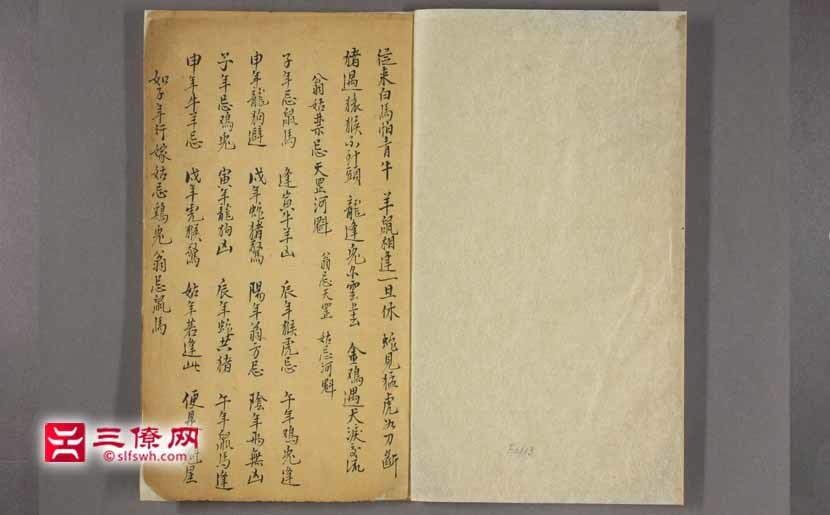 從来白馬怕青牛 羊鼠相逢一旦休 蛇見猛虎如刀斷
猪遇猿猴不到頭 龍逢兔 金鷄遇犬淚交流
翁姑禁忌天罡河魁 翁忌天罡 姑忌河魁
子年忌鼠馬 逢寅牛羊凶 辰年猴虎忌 午年鷄兔逢
申年龍狗避 戌年蛇猪驚 陽年翁方忌 陰年 無凶
子年忌鷄兔 寅年龍狗凶 辰年蛇共猪 午年鼠馬逢
申年牛羊忌 戌年虎猴驚 姑年若逢此 便是 星
如子年行嫁姑忌鷄兔翁忌鼠馬
三僚网
www.slfswh.com